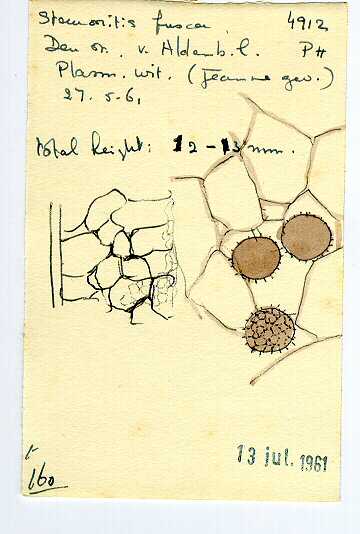 Stemonitis fusca 4912
Den or. v. Aldenb. l. PH
Plasm. wit. (Jeanne gev.)
27. 5-61
total height: 12 - 13 mm.
13 jul. 1961
160